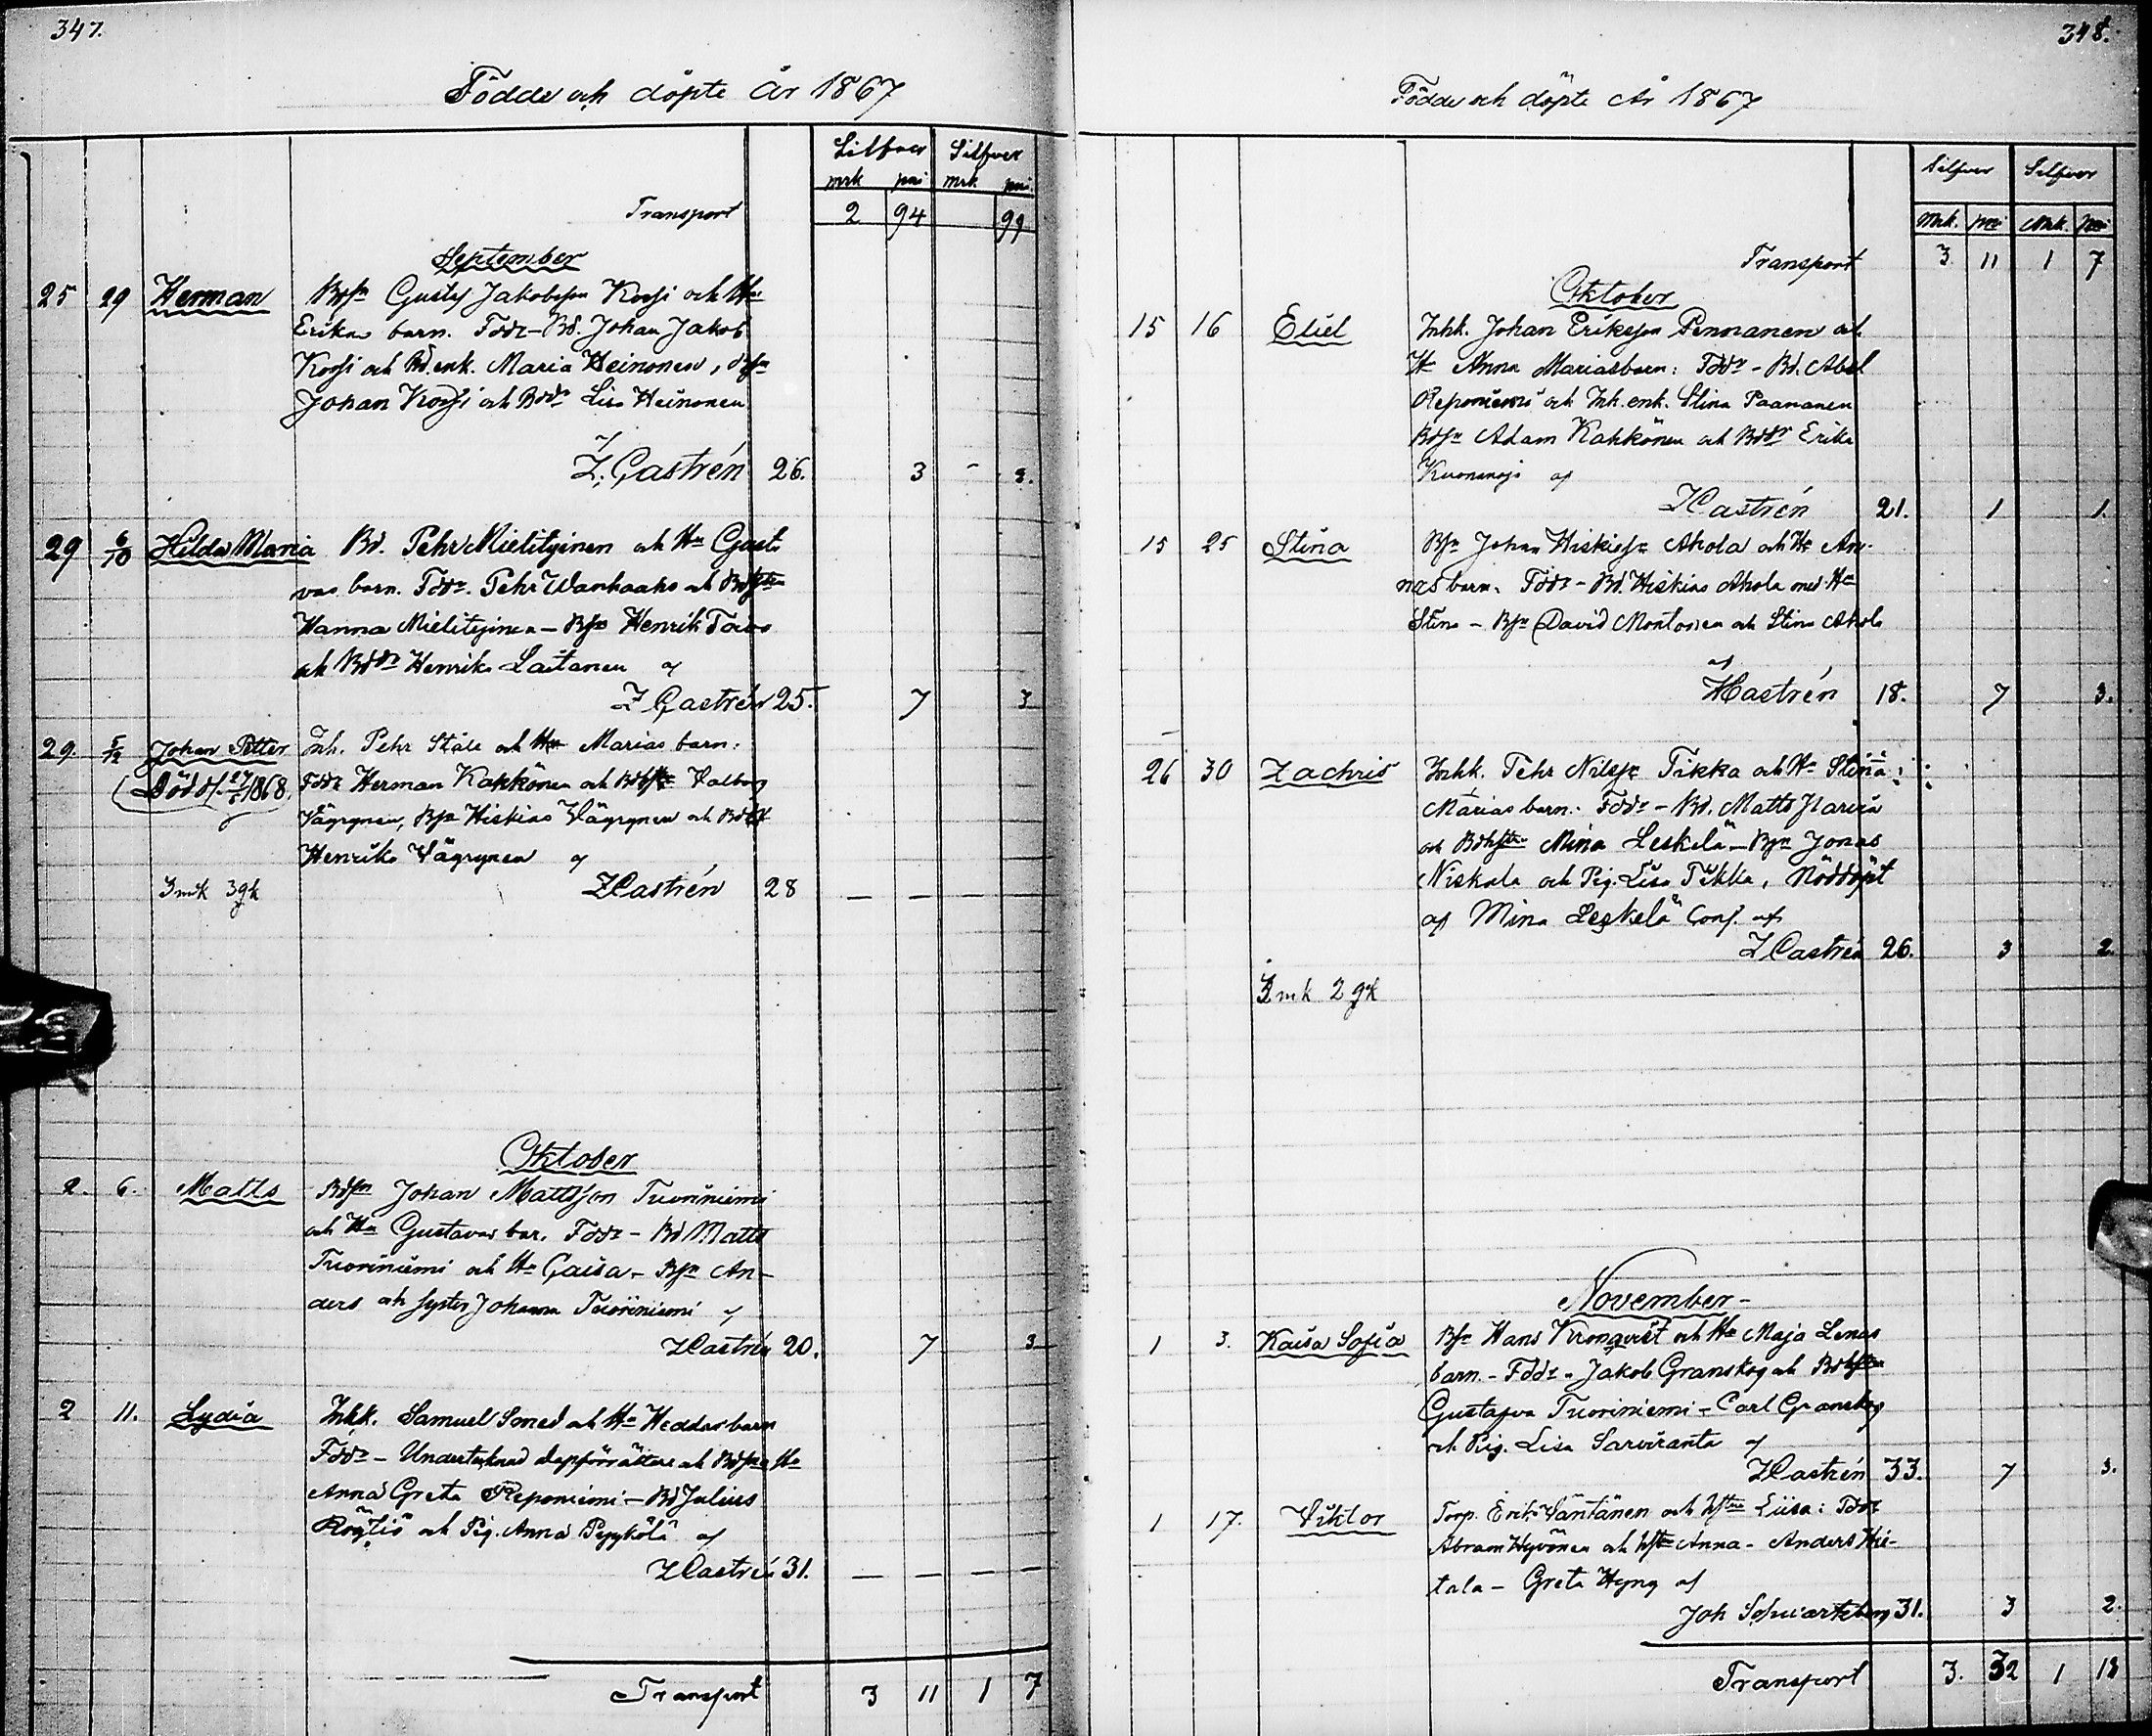 347.
Födde och döpte År 1867
Silfver Silfver
mrk pni mrk pni
Transport 2 94 99
September
25 29 Herman Bdsn Gustaf Jakobsson Korsi och Hu
Erikas barn. Fddr - Bd. Johan Jakob
Korsi och Bd. enk. Maria Heinonen, Bdsn
Johan Korsi och Bddr Lisa Heinonen
af
Z. Castrén 26. 3 - 2.
29 6/10 Hilda Maria Bd. Pehr Mielityinen och Hu Gusta
vas barn. Fddr. Pehr Wanhaaho och
Hanna Mielityinen - Bsn Henrik
och Bddr Henrika Laitanen af
Z Castrén 25. 7 3
29. 5/12 Johan Petter Inh. Pehr Ståle och Hu Marias barn:
Död d. 27/5 1868. Fddr Herman Kakkönen och Valborg
Väyrynen, Bsn Hiskias Väyrynen och
Henrika Väyrynen af
3 mk 3 gk ZCastrén 28 - - - -
Oktober
2. 6. Matts Bdsn Johan Mattsson Tuoriniemi
och Hu Gustavas bar. Fddr - Bd Matts
Tuoriniemi och Hu Caisa - Bsn An-
ders och syster Johanna Tuoriniemi af
ZCastrén 20. 7 3
2 11. Lydia Inhk. Samuel Smed och Hu Heddas barn
Fddr - Undertecknad dopförrättare och Hu
Anna Greta Reponiemi - Bd Julius
och Pig. Anna Pyykölä af
ZCastrén 31. - - - -
Transport 3 11 1 7
348.
Födde och döpte År 1867
Silfver Silfver
Mrk. pni Mrk. pni
Transport 3 11 1 7
Oktober
15 16 Eliel Inhk. Johan Eriksson Pennanen och
Hu Anna Marias barn: Fddr - Bd. Abel
Reponiemi och Inh. enk. Stina Paananen
Bdsn Adam Kahkönen och Bddr Erika
af
ZCastrén 21. 1 1.
15 25 Stina Bsn Johan Hiskiss Ahola och Hu An-
nas barn. Fddr - Bd. Hiskias Ahola med Hu
Stina - Bsn David Montonen och Stina Ahola
af
ZCastrén 18. 7 3.
26 30 Zachris Inhk. Pehr Nilss Tikka och Hu Stina
Marias barn: Fddr - Bd. Matts
och Mina Leskelä - Bsn Jonas
Niskala och Pig. Lisa Tikka, Nöddöpt
af Mina Leskelä Conf. af
Z Castrén 26. 3 2.
3 mk 2 gk
November -
1 3. Kaisa Sofia Bsn Hans Kronqvist och Hu Maja Lenas
barn. - Fddr - Jakob Granskog och
Gustafva Tuoriniemi - Carl Granskog
och Pig. Lisa Sarviranta af
ZCastrén 33. 7 3.
1 17. Viktor Torp. Erik Väntänen och Liisa: Fddr
Abram Hyvönen och Anna - Anders Hie-
tala - Greta Hyry af
Joh Schwartzberg 31. 3 2
Transport 3. 32 1 18